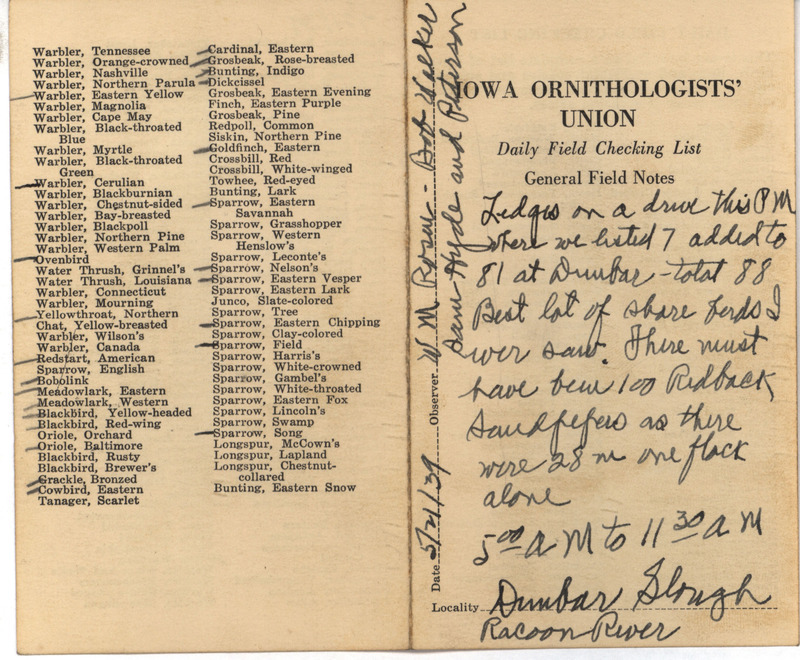 Warbler, Tennessee
Warbler, Orange-crowned
Warbler, Nashville
Warbler, Northern Parula
Warbler, Eastern Yellow
Warbler, Magnolia
Warbler, Cape May
Warbler, Black-throated
Blue
Warbler, Myrtle
Warbler, Black-throated
Green
Warbler, Cerulian
Warbler, Blackburnian
Warbler, Chestnut-sided
Warbler, Bay-breasted
Warbler, Blackpoll
Warbler, Northern Pine
Warbler, Western Palm
Ovenbird
Water Thrush, Grinnel's
Water Thrush, Louisiana
Warbler, Connecticut
Warbler, Mourning
Yellowthroat, Northern
Chat, Yellow-breasted
Warbler, Wilson's
Warbler, Canada
Redstart, American
Sparrow, English
Bobolink
Meadowlark, Eastern
Meadowlark, Western
Blackbird, Yellow-headed
Blackbird, Red-wing
Oriole, Orchard
Oriole, Baltimore
Blackbird, Rusty
Blackbird, Brewer's
Grackle, Bronzed
Cowbird, Eastern
Tanager, Scarlet
Cardinal, Eastern
Grosbeak, Rose-breasted
Bunting, Indigo
Dickcissel
Grosbeak, Eastern Evening
Finch, Eastern Purple
Grosbeak, Pine
Redpoll, Common
Siskin, Northern Pine
Goldfinch, Eastern
Crossbill, Red
Crossbill, White-winged
Towhee, Red-eyed
Bunting, Lark
Sparrow, Eastern
Savannah
Sparrow, Grasshopper
Sparrow, Western
Henslow's
Sparrow, Leconte's
Sparrow, Nelson's
Sparrow, Eastern Vesper
Sparrow, Eastern Lark
Junco, Slate-colored
Sparrow, Tree
Sparrow, Eastern Chipping
Sparrow, Clay-colored
Sparrow, Field
Sparrow, Harris's
Sparrow, White-crowned
Sparrow, Gambel's
Sparrow, White-throated
Sparrow, Eastern Fox
Sparrow, Lincoln's
Sparrow, Swamp
Sparrow, Song
Longspur, McCown's
Longspur, Lapland
Longspur, Chestnut-
collared
Bunting, Eastern Snow
IOWA ORNITHOLOGISTS'
UNION
Daily Field Checking List
General Field Notes
Ledges on a drive this P M
where we listed 7 added to
81 at Dunbar - total 88
Best lot of shore birds I
ever saw. There must
have been 100 Redback
Sandpipers as there
were 28 in one flock
alone
5 00 A M to 11 30 A M
Locality Dunbar Slough
Racoon River
Date 5/21/39 Observer W M Rosen - Bob Walker
Sam Hyde and Peterson